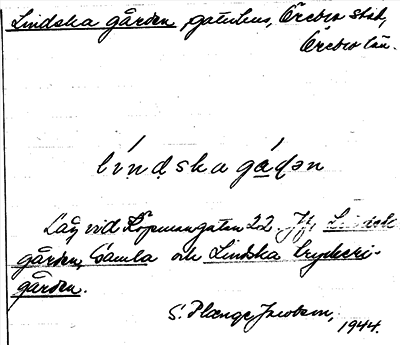 Lindska gården, gatuhus, Örebro stad,
Örebro län.
líndska gá̱dən
Låg vid Köpmangatan 22. Jf, Lindska
gården, Gamla och Lindska bryggeri-
gården.
S. Plænge Jacobson,
1944.